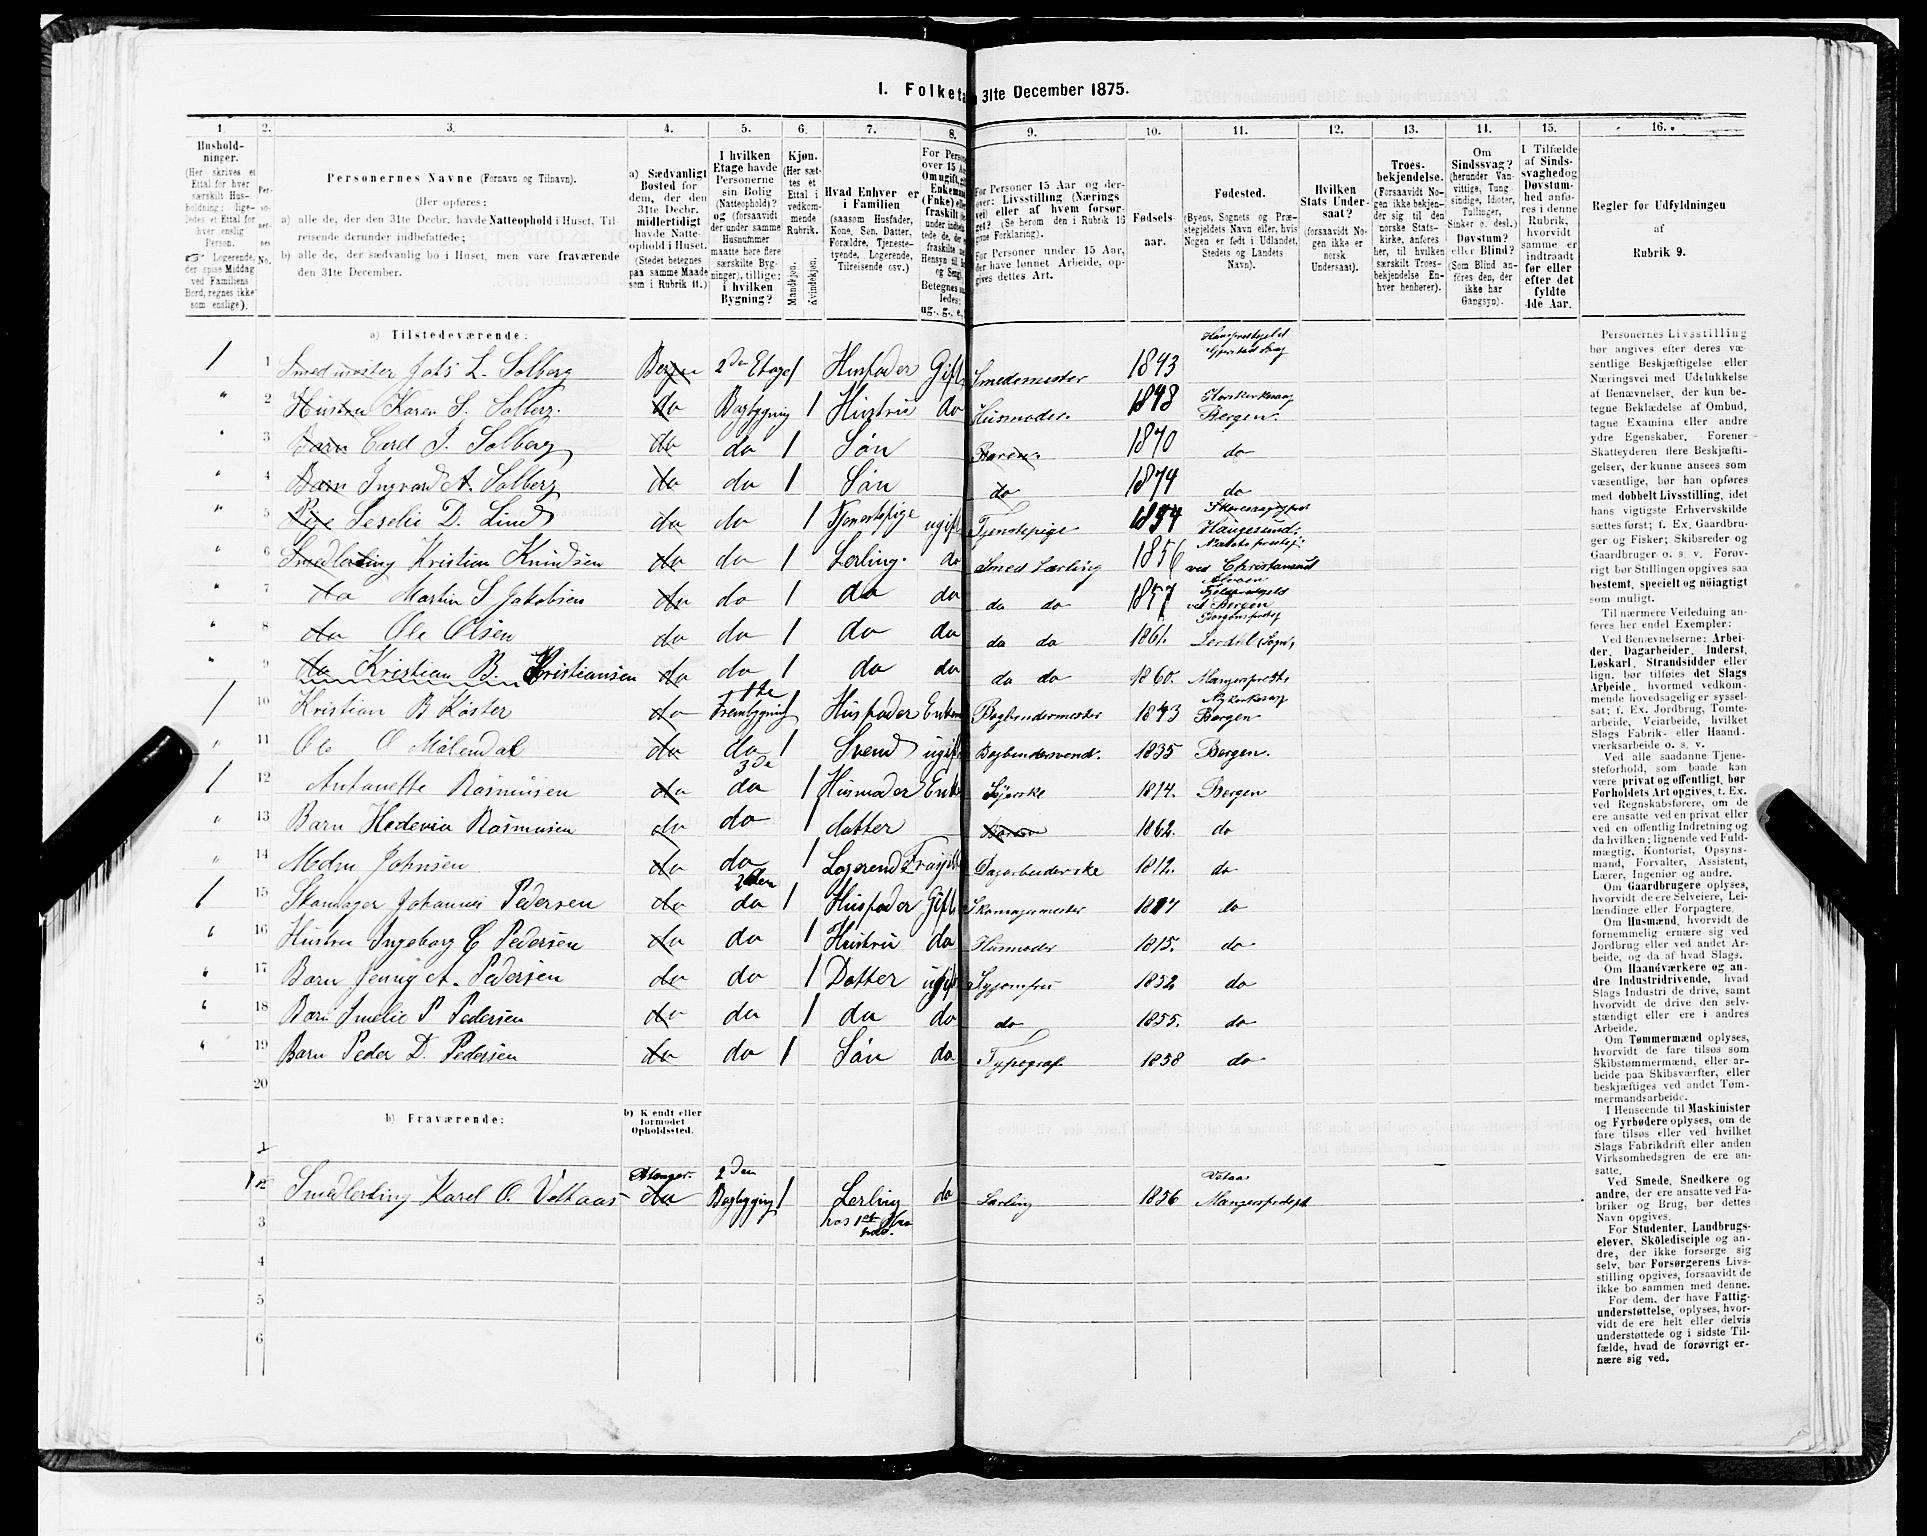 1. Folketæ 31te December 1875.
1. 2. 3. 4. 5. 6. 7. 8. 9. 10. 11. 12. 13. 14. 15. 16.
Hushold-
ninger.
(Her skrives et
Ettal for hver
særskilt Hus-
holdning; lige-
ledes et Ettal for
hver enslig
Person.
☞ Logerende,
der spise Middag
ved Familiens
Bord, regnes ikke
som enslige).
Per-
so-
ner-
nes
No.
Personernes Navne (Fornavn og Tilnavn).
(Her opføres:
a) alle de, der den 31te Decbr. havde Natteophold i Huset, Til-
reisende derunder indbefattede;
b) alle de, der sædvanlig bo i Huset, men vare fraværende
den 31te December.
a) Sædvanligt
Bosted for
dem, der den
31te Decbr.
midlertidigt
havde Natte-
ophold i Huset.
(Stedet betegnes
paa samme Maade
som i Rubrik 11.)
I hvilken
Etage havde
Personerne
sin Bolig
(Natteophold)?
og (forsaavidt
der under samme
Husnummer
maatte høre flere
særskilte Byg-
ninger), tillige:
i hvilken
Bygning?
Kjøn.
(Her sæt-
tes et
Ettal i
vedkom-
mende
Rubrik.
Mandkjøn.
Kvindekjøn.
Hvad Enhver er
i Familien
(saasom Husfader,
Kone, Søn, Datter,
Forældre, Tjeneste-
tyende, Logerende,
Tilreisende osv.)
For Perso
over 15 Aa
Om ugift, gi
Enkeman
(Enke) elle
fraskilt
Betegnes saa
ledes:
ug., g., e.,
For Personer 15 Aar og der-
over: Livsstilling (Nærings
vei) eller af hvem forsør-
get? (Se herom den i Rubrik 16
givne Forklaring).
For Personer under 15 Aar,
der have lønnet Arbeide, op-
gives dettes Art.
Fødsels-
aar.
Fødested.
(Byens, Sognets og Præ-
stegjeldets Navn eller, hvis
Nogen er født i Udlandet,
Stedets og Landets
Navn).
Hvilken
Stats Under-
saat?
(forsaavidt No-
gen ikke er
norsk
Undersaat).
Troes-
bekjendelse.
(Forsaavidt No-
gen ikke bekjen-
der sig til den
norske Stats-
kirke, anføres
her, til hvilken
særskilt Troes-
bekjendelse En-
hver henhører).
Om
Sindssvag?
(herunder Van-
vittige, Tung-
sindige, Idioter,
Tullinger,
Sinker o. desl.)
Døvstum?
eller Blind?
(Som Blind an-
føres den, der
ikke har
Gangsyn).
I Tilfælde
af Sinds-
svaghed og
Døvstum-
hed anfø-
res i denne
Rubrik,
hvorvidt
samme er
indtraadt
før eller
efter det
fyldte
4de Aar.
Regler for Udfyldningen
af
Rubrik 9.
a) Tilstedeværende:
1 1 Smedmester Jabs L. Solberg Bergen 2den Etage 1 Husfader Gift Smedemester 1843
" 2 Hustru Karen S. Solberg. do Bagbygning 1 Hustru do Husmoder 1848 Korskirkesog Bergen
" 3 Barn Carl J. Solberg do do 1 Søn Barn 1870 do
" 4 Barn Ingvard A. Solberg do do 1 Søn do 1874 do
" 5 Pige Seselie D. Lind do do 1 Tjenestepige ugift Tjenstepige 1854 Haugesund
" 6 Smedlerling Kristian Knudsen do do 1 Lerling do Smed Lærling 1856 ved Christiansund
" 7 do Martin S Jakobsen do do 1 do do do do 1857 ved Bergen
" 8 do Ole Olsen do do 1 do do do do 1861. Lerdal (Sogn)
" 9 do Kristian B. Kristiansen do do 1 do do do do 1860. Mangerprestg
1 10 Kristian B Køster do 1ste Frembygning 1 Husfader Enkem Bogbindermester 1843 Nykirkesog Bergen
" 11 Ole O Mølendal do do 1 Svend ugift Bogbindersvend. 1835 Bergen.
1 12 Antonette Rasmusen do 3de do 1 Husmoder Enke Syerske 1814. Bergen
" 13 Barn Hedevia Rasmusen do do 1 datter Barn 1862. do
" 14 Johnsen do do 1 Logerende Fraskilt Dagarbeiderske 1812. do
1 15 Skomager Johannes Pedersen do 2den do 1 Husfader Gift Skomagermester 1817 do
" 16 Hustru Ingeborg C Pedersen do do 1 Hustru do Husmoder 1815. do
" 17 Barn Jenny A. Pedersen do do 1 Datter ugift Syjomfru 1852 do
" 18 Barn Emelie P Pedersen do do 1 do do do 1855. do
" 19 Barn Peder D. Pedersen do do 1 Søn do Typograf 1858 do
20
b) Fraværende:
b) Kjendt eller
formodet
Opholdssted.
1
1 2 Smedlerling Karel O. Votaas Stanger. do 2den Bagbygning 1 Lerling do Lærling 1856 Votaas Mangersprestgd
3 hos 1ste
5
6
Personernes Livsstilling
bør angives efter deres væ-
sentlige Beskjæftigelse eller
Næringsvei med Udelukkelse
af Benævnelser, der kun be-
tegne Beklædelse af Ombud,
tagne Examina eller andre
ydre Egenskaber. Forener
Skatteyderen flere Beskjæfti-
gelser, der kunne ansees som
væsentlige, bør han opføres
med dobbelt Livsstilling, idet
hans vigtigste Erhvervskilde
sættes først; f. Ex. Gaardbru-
ger og Fisker; Skibsreder og
Gaardbruger o. s. v. Forøv-
rigt bør Stillingen opgives saa
bestemt, specielt og nøiagtigt
som muligt.
Til nærmere Veiledning an-
føres her endel Exempler:
Ved Benævnelserne: Arbei-
der, Dagarbeider, Inderst,
Løskarl, Strandsidder eller
lign. bør tilføies det Slags
Arbeide, hvormed vedkom-
mende hovedsagelig er syssel-
sat; f. Ex. Jordbrug, Tomte-
arbeide, Veiarbeide, hvilket
Slags Fabrik- eller Haand-
værksarbeide o. s. v.
Ved alle saadanne Tjene-
steforhold, som baade kan
være privat og offentligt, bør
Forholdets Art opgives, f. Ex.
ved Regnskabsførere, om de
ere ansatte ved en privat eller
ved en offentlig Indretning og
da hvilken; lignende ved Fuld-
mægtig, Kontorist, Opsyns-
mand, Forvalter, Assistent,
Lærer, Ingeniør og andre.
Om Gaardbrugere oplyses,
hvorvidt de ere Selveiere, Lei-
lændinge eller Forpagtere.
Om Husmænd, hvorvidt de
fornemmelig ernære sig ved
Jordbrug eller ved andet Ar-
beide, og da af hvad Slags.
Om Haandværkere og an-
dre Industridrivende, hvad
Slags Industri de drive, samt
hvorvidt de drive den selv-
stændigt eller ere i andres
Arbeide.
Om Tømmermænd oplyses,
hvorvidt de fare tilsøs som
Skibstømmermænd, eller ar-
beide paa Skibsværfter, eller
beskjæftiges ved andet Tøm-
mermandsarbeide.
I Henseende til Maskinister
og Fyrbødere oplyses, om de
fare tilsøs eller ved hvilket
Slags Fabrikdrift eller anden
Virksomhedsgren de ere an-
satte.
Ved Smede, Snedkere og
andre, der ere ansatte ved Fa-
briker og Brug, bør dettes
Navn opgives.
For Studenter, Landbrugs-
elever, Skoledisciple og an-
dre, der ikke forsørge sig
selv, bør Forsørgerens Livs-
stilling opgives, forsaavidt de
ikke bo sammen med denne.
For dem, der have Fattig-
understøttelse, oplyses, hvor-
vidt de ere helt eller delvis
understøttede og i sidste Til-
fælde, hvad de forøvrigt er-
nære sig ved.